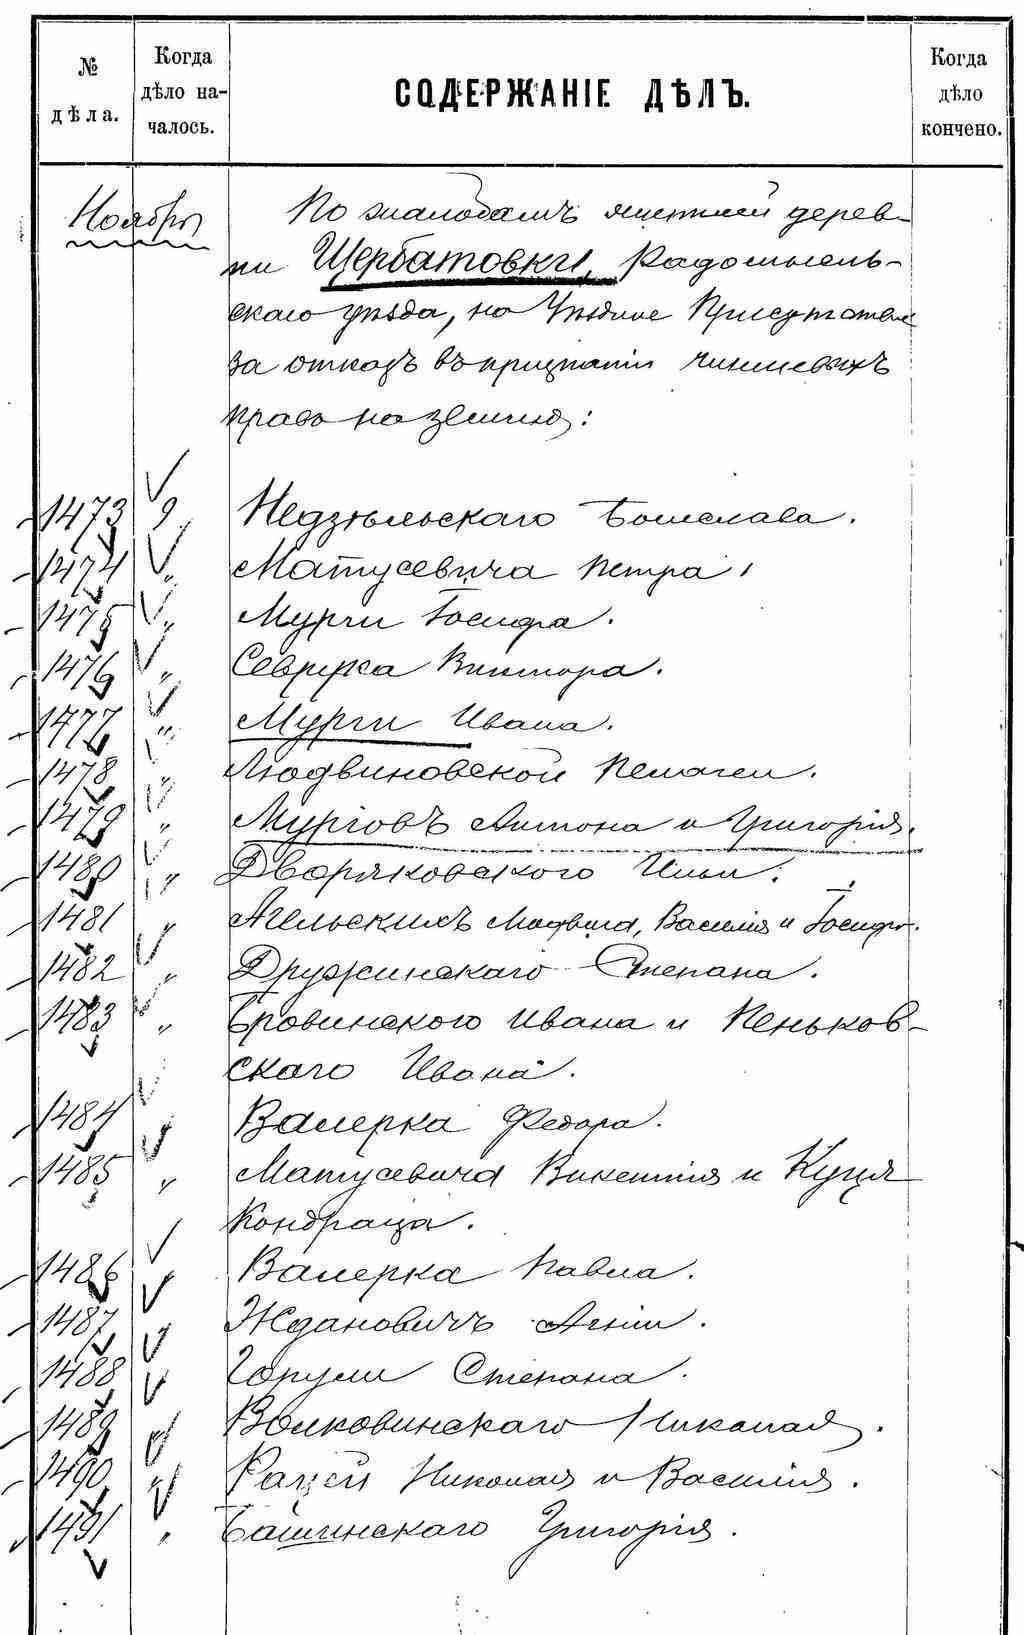 № дѣла.
Когда дѣло на-чалось.
СОДЕРЖАНІЕ ДѢЛЪ.
Когда дѣло кончено.
Ноябрь
По жалобамъ жителей дерев-
ни Щербатовки, Радомысль-
скаго уѣзда, на Уѣздное Присутствіе
за отказъ въ признаніи чиншевыхъ
правъ на землю:
1473 9 Недзѣльскаго Болеслава.
1474 " Матусевича Петра.
1475 " Мурги Іосифа.
1476 " Севрука Виктора.
1477 " Мурги Ивана.
1478 " Людвиновской Пелагеи.
1479 " Мурговъ Антона и Григорія.
1480 " Дворяковскаго Ильи.
1481 " Агельскихъ Василія и Іосифа.
1482 " Дружинскаго Степана.
1483 " Бровинского Ивана и Пеньков-
скаго Ивана.
1484 " Валерка Федора.
1485 " Матусевича Викентія и Куця
Кондрата.
1486 " Валерка Павла.
1487 " Ждановичъ Агніи.
1488 " Степана.
1489 " Волковинскаго Николая.
1490 " Рацей Николая и Василія.
1491 " Башинскаго Григорія.